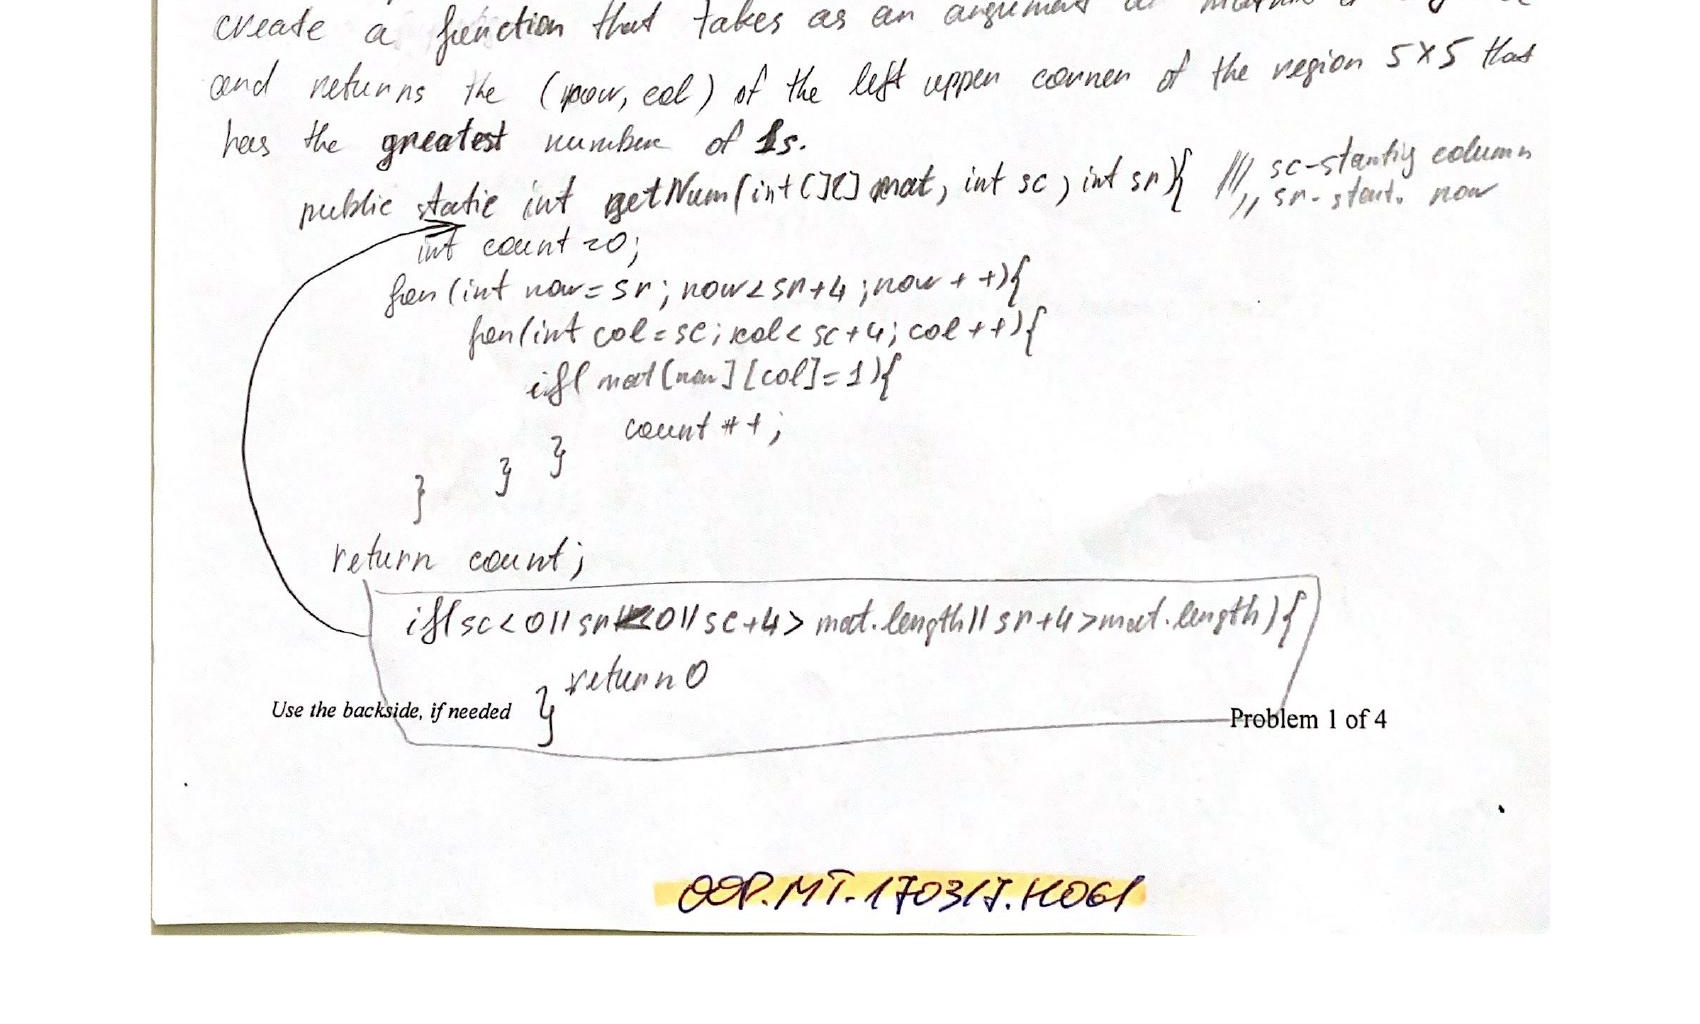 create a function that takes as an argument a
and returns the (row, col) of the left upper corner of the region 5x5 that
has the greatest number of 1s.
public static int getNum(int[][] mat, int sc, int sr){ /// sc-startig column
// sr-start. row
int count = 0;
for(int row = sr; row < sr+4; row++){
for(int col = sc; col < sc+4; col++){
if( mat[row][col]=1){
count++;
}
}
}
return count;
if(sc<0||sr<0||sc+4>mat.length||sr+4>mat.length){
return 0
}
Use the backside, if needed
Problem 1 of 4
OOP.MT.170317.H061